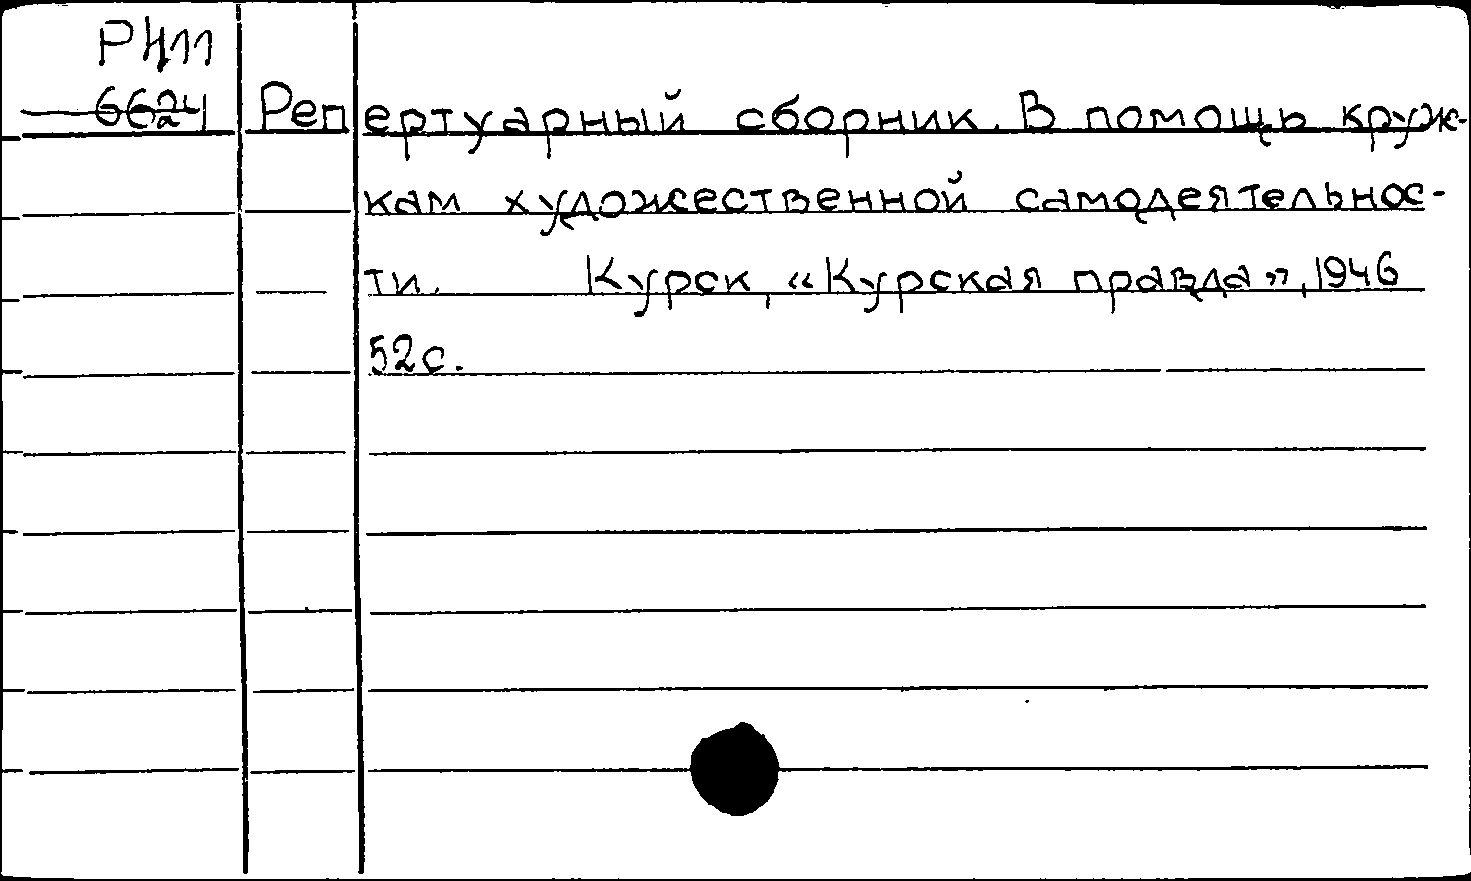 РЧ11
6624
Репертуарный сборник. В помощь круж-
кам художественной самодеятельнос-
ти. Курск, «Курская правда», 1946
52 с.